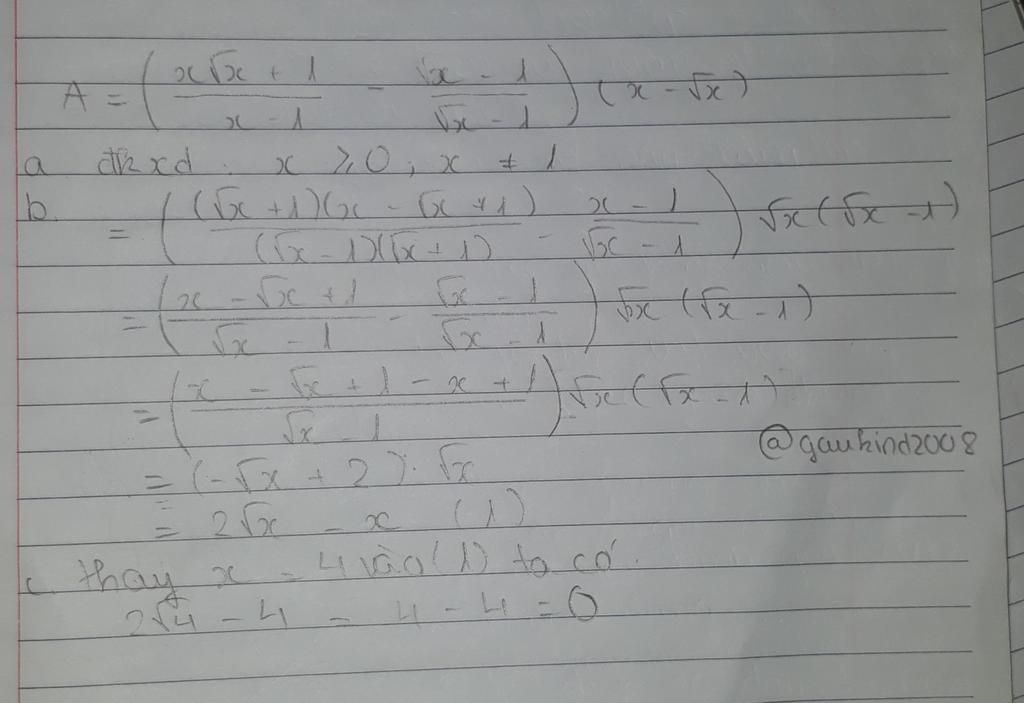 A = ( (x√x + 1)/(x - 1) - (√x - 1)/(√x - 1) ) (x - √x)
a đkxd : x ≥ 0, x ≠ 1
b.
= ( ((√x + 1)(x - √x + 1))/((√x - 1)(√x + 1)) - (x - 1)/(√x - 1) ) √x (√x - 1)
= ( (x - √x + 1)/(√x - 1) - (√x - 1)/(√x - 1) ) √x (√x - 1)
= ( (x - √x + 1 - x + 1)/(√x - 1) ) √x (√x - 1)
@gaukind2008
= (-√x + 2) . √x
= 2√x - x (1)
c. thay x = 4 vào (1) ta có.
2√4 - 4 = 4 - 4 = 0